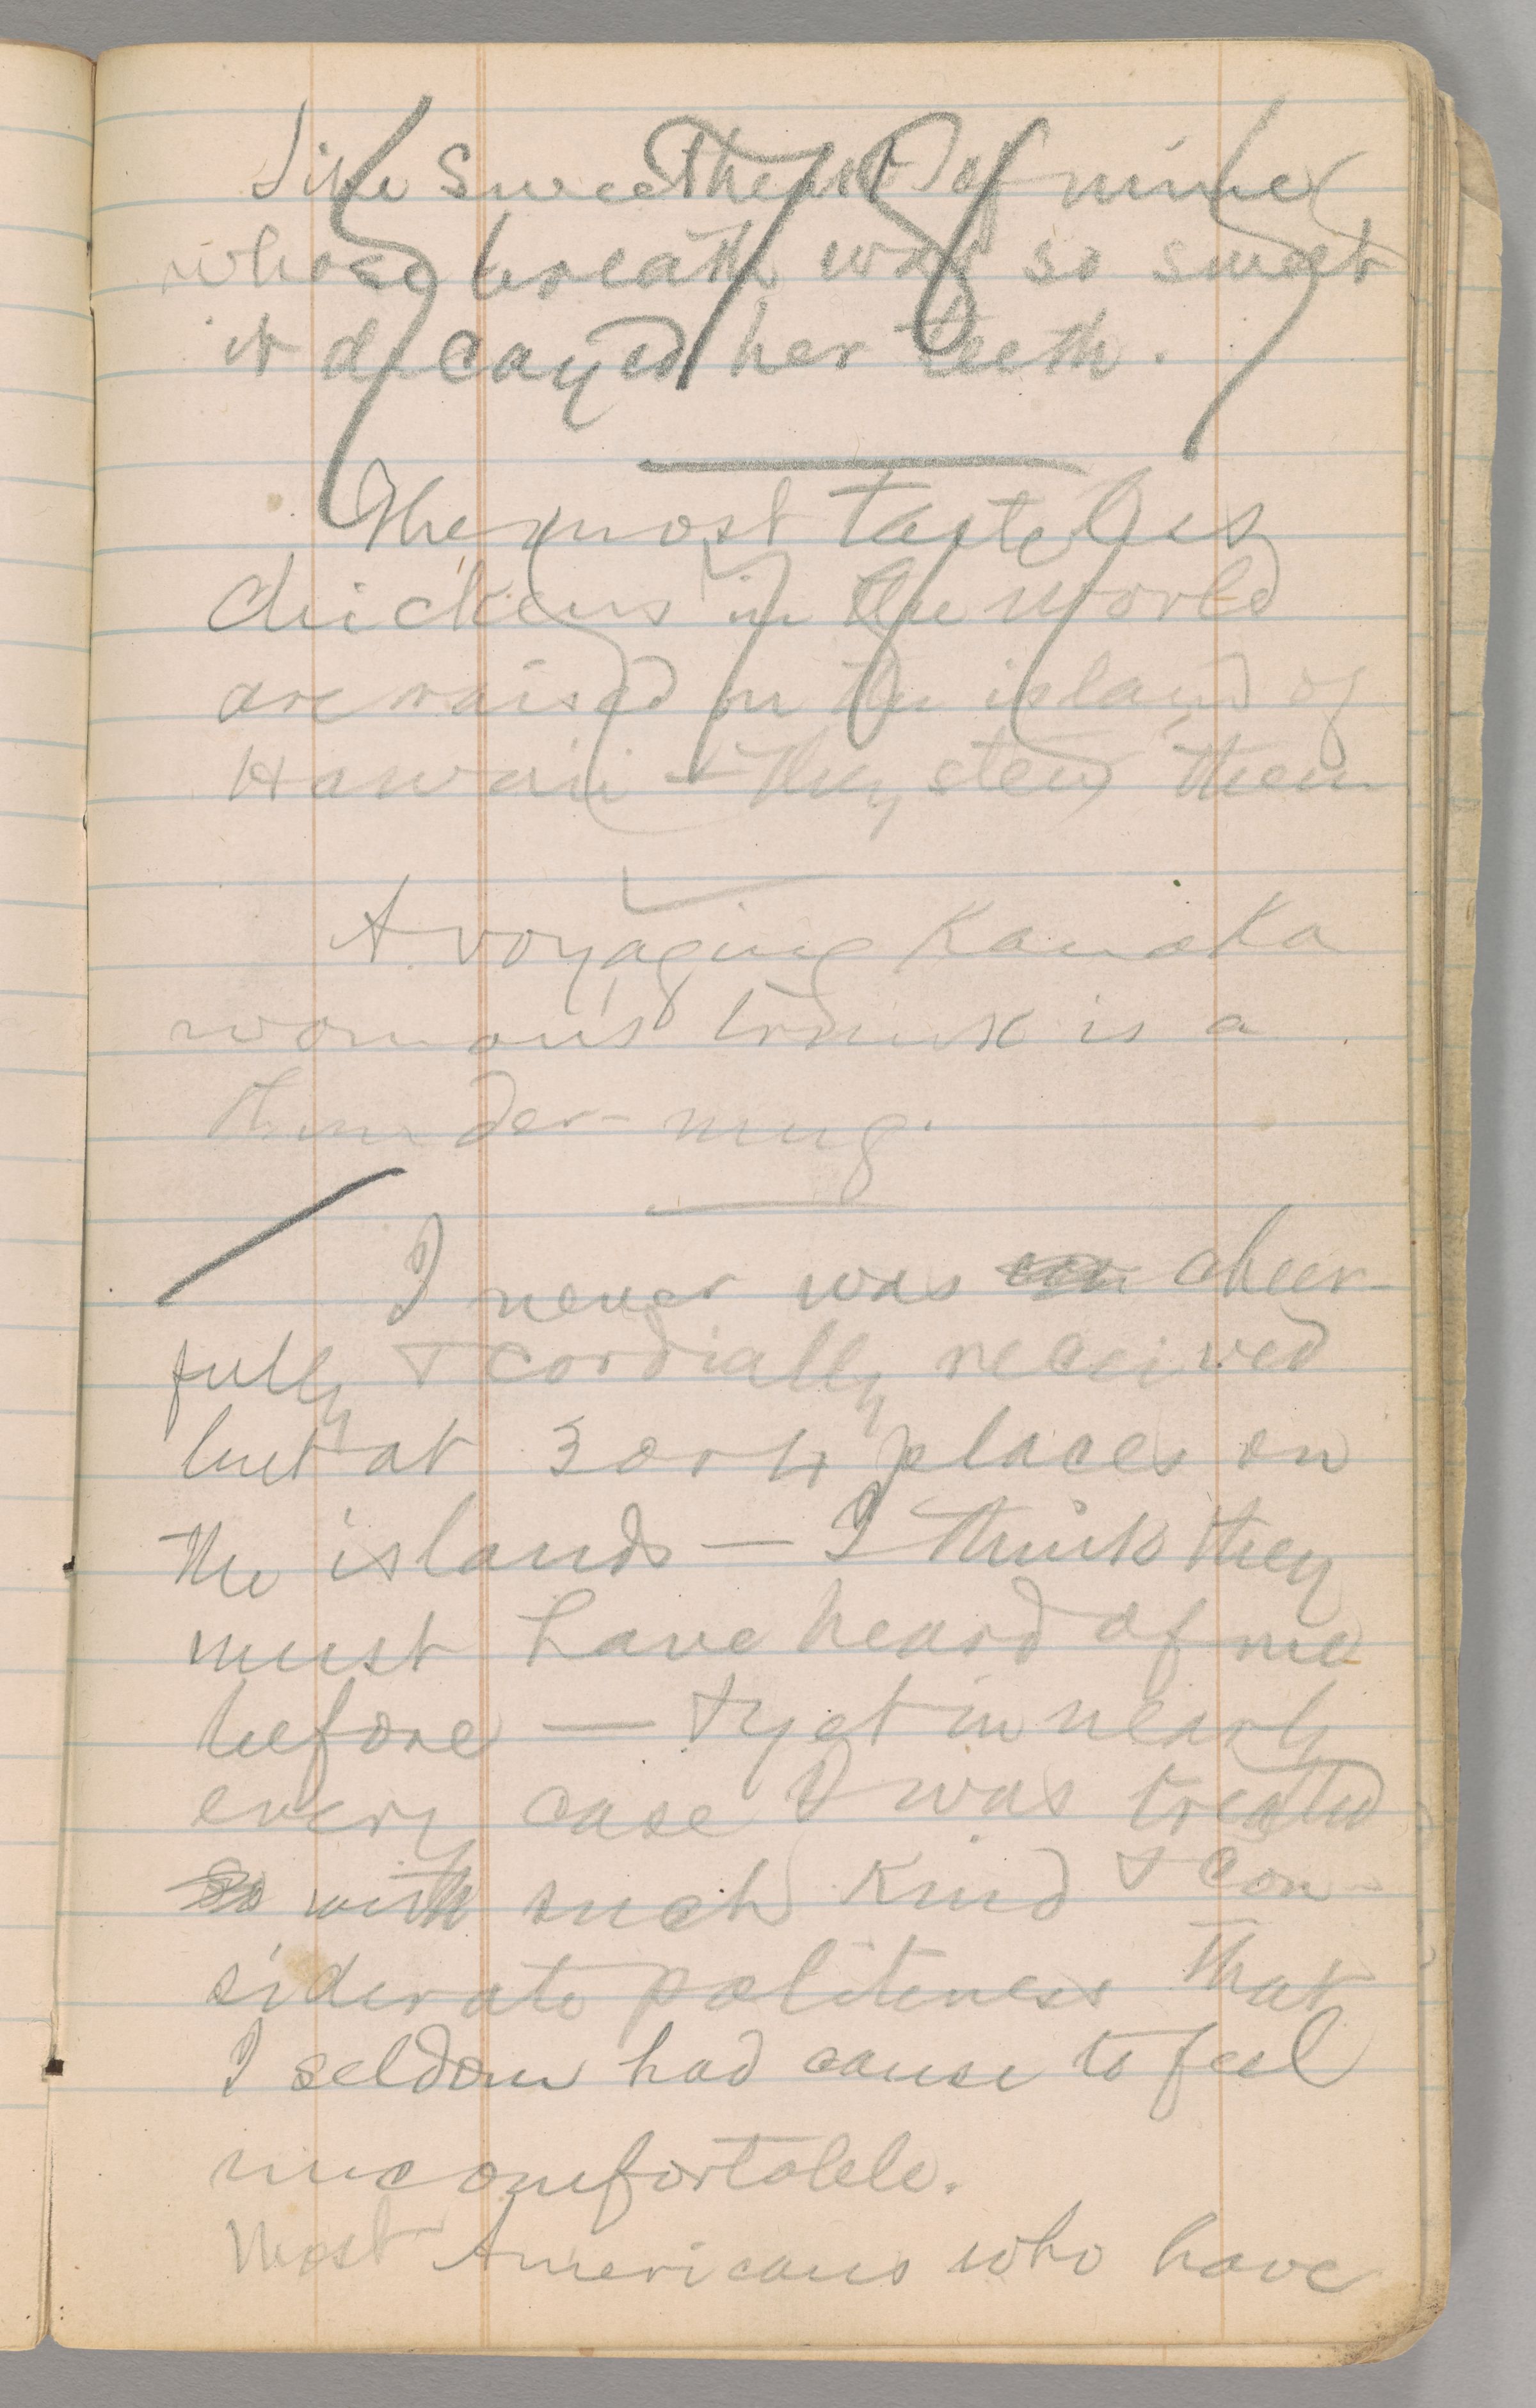 Like Sweetheart of mine
whose breath was so sweet
it decayed her teeth.
The most tasteless
chickens in the world
are raised on the island of
Hawaii – they stew them
A voyaging Kanaka
woman's trunk is a
thunder-mug.
I never was cheer-
fully & cordially received
but at 3 or 4 places on
the islands — I think they
must have heard of me
before — & yet in nearly
every case I was treated
so with such kind & con-
siderate politeness that
I seldom had cause to feel
uncomfortable.
Most Americans who have